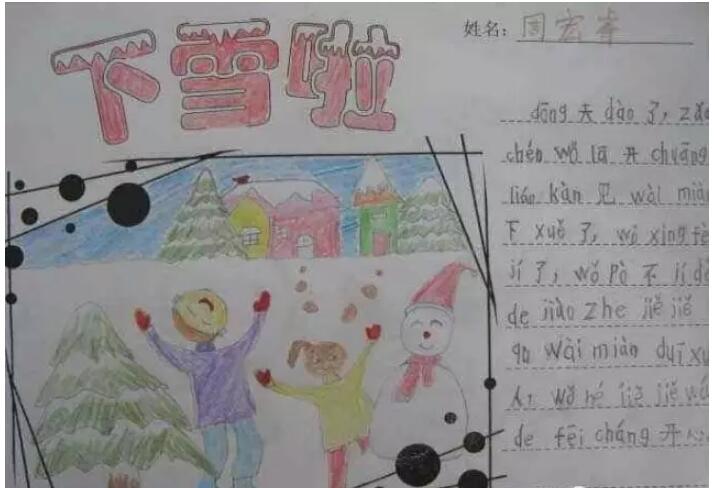 下雪啦
姓名：周宏岸
dōng 天 dào 了，zǎo
chén wǒ lā 开 chuāng
lián kàn 见 wài miàn
下 xuě 了，wǒ xīng fèn
jí 了，wǒ Pò 不 jí dà
de jiào zhe jiě jie
qù wài miàn duī xuě
人，wǒ hé jiě jie wán
de fēi cháng 开心